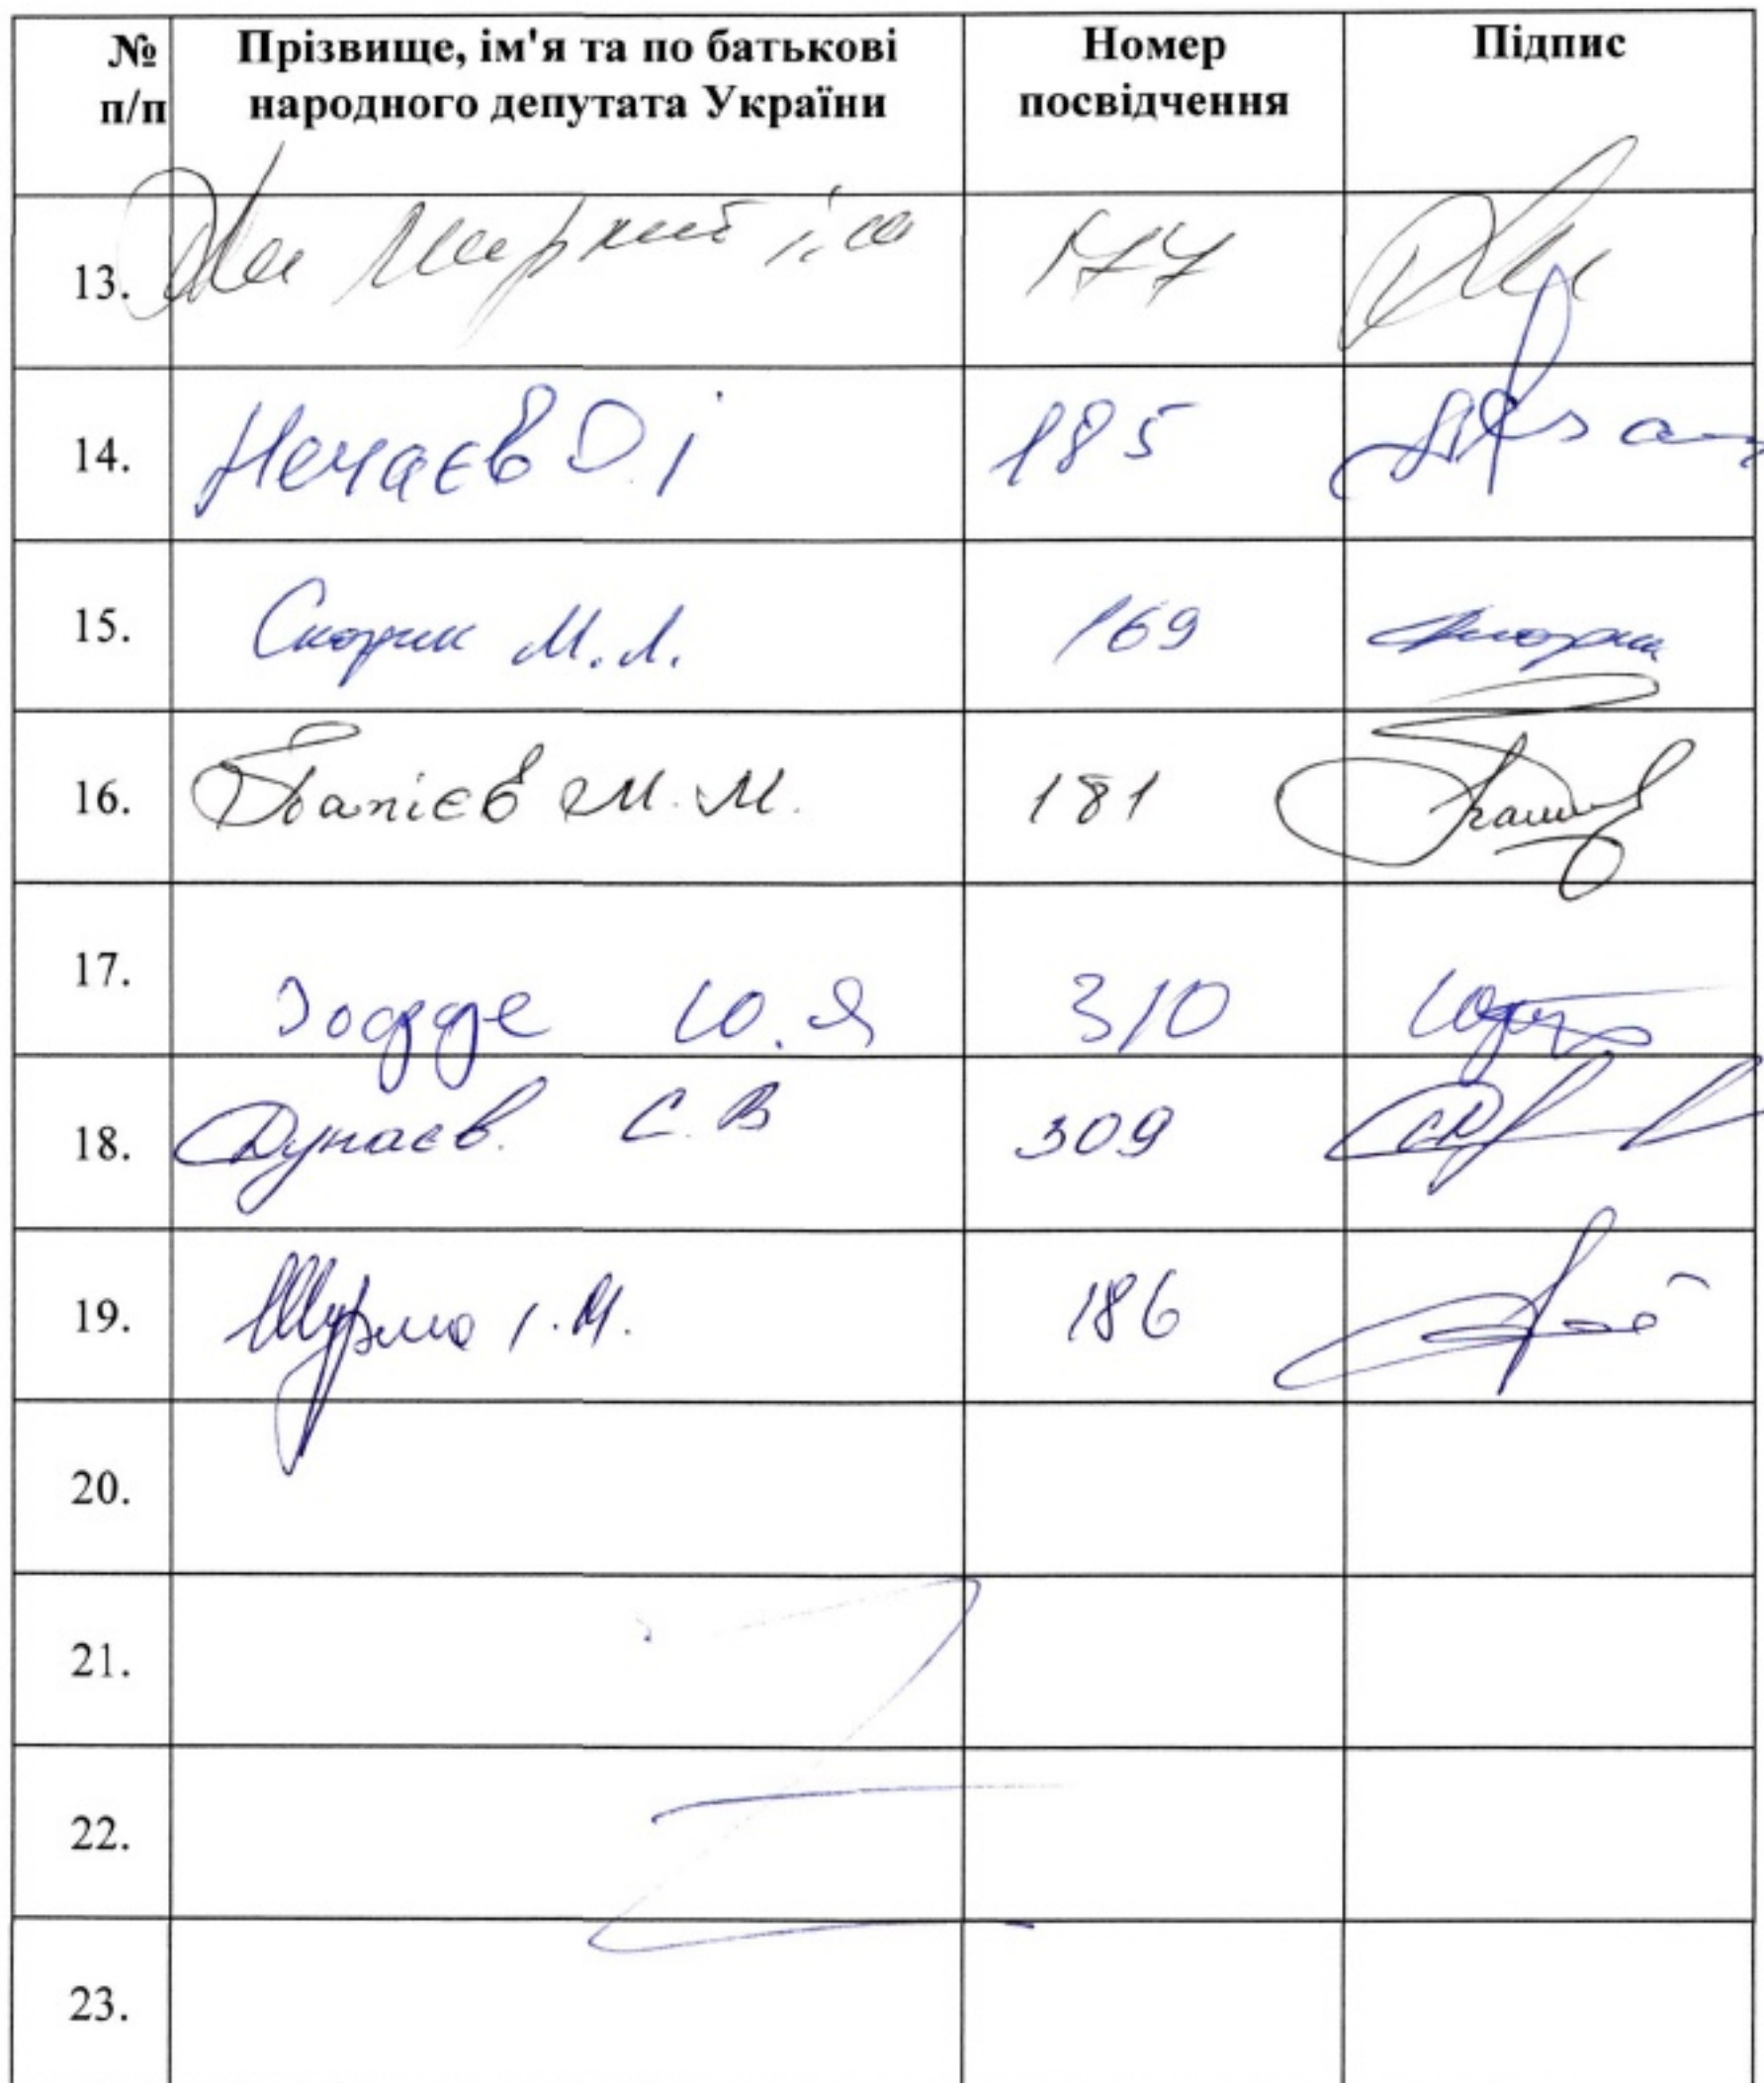 № Прізвище, ім'я та по батькові Номер Підпис
п/п народного депутата України посвідчення
13. 177
14. Нечаєв О.І 185
15. Скорик М.Л. 169
16. Папієв М.М. 181
17. Іоффе Ю.Я 310
18. Дунаєв. С.В 309
19. Шурма І.М. 186
20.
21.
22.
23.